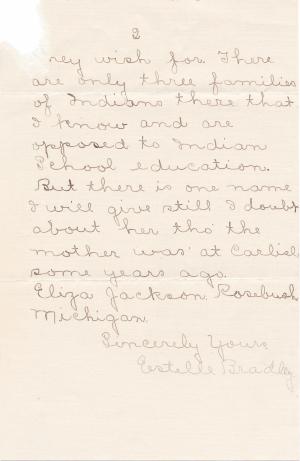 2
ney wish for. There
are only three families
of Indians there that
I know and are
opposed to Indian
School education.
But there is one name
I will give still I doubt
about her tho' the
mother was at Carlisle
some years ago.
Eliza Jackson. Rosebush
Michigan.
Sincerely Yours,
Estelle Bradley